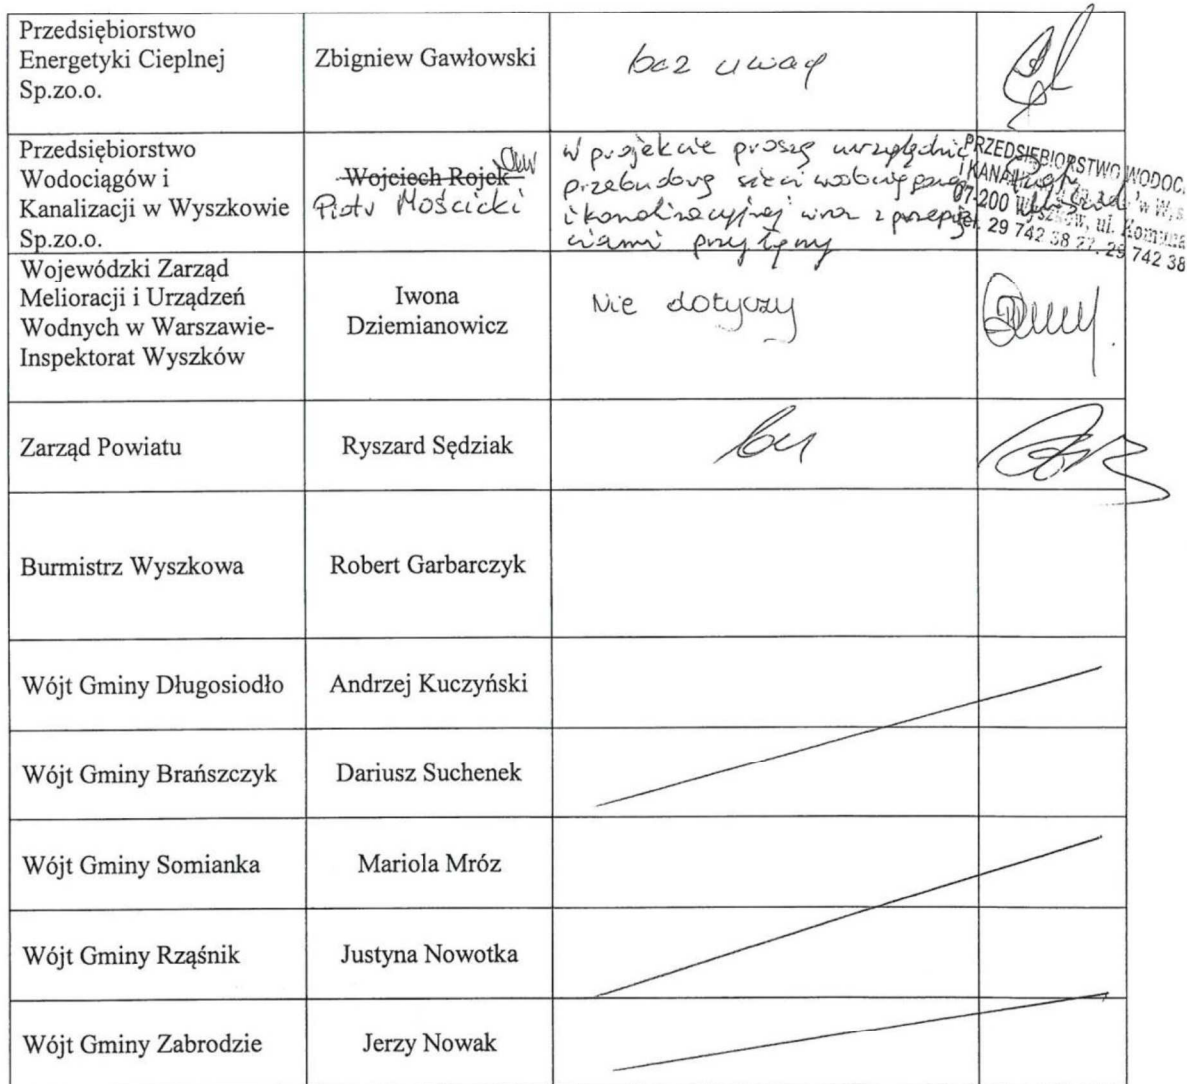 Przedsiębiorstwo
Energetyki Cieplnej
Sp.zo.o.
Zbigniew Gawłowski
bez uwag
Przedsiębiorstwo
Wodociągów i
Kanalizacji w Wyszkowie
Sp.zo.o.
Wojciech Rojek
Piotr Mościcki
W projekcie proszę uwzględnić
przebudowę sieci wodociągowej
i kanalizacyjnej wraz z przepię
ciami przyłączy
PRZEDSIĘBIORSTWO WODOC
I KANAL
07-200 Wyszków, ul. Komuna
tel. 29 742 38 27, 29 742 38
Wojewódzki Zarząd
Melioracji i Urządzeń
Wodnych w Warszawie-
Inspektorat Wyszków
Iwona
Dziemianowicz
Nie dotyczy
Zarząd Powiatu
Ryszard Sędziak
Burmistrz Wyszkowa
Robert Garbarczyk
Wójt Gminy Długosiodło
Andrzej Kuczyński
Wójt Gminy Brańszczyk
Dariusz Suchenek
Wójt Gminy Somianka
Mariola Mróz
Wójt Gminy Rząśnik
Justyna Nowotka
Wójt Gminy Zabrodzie
Jerzy Nowak